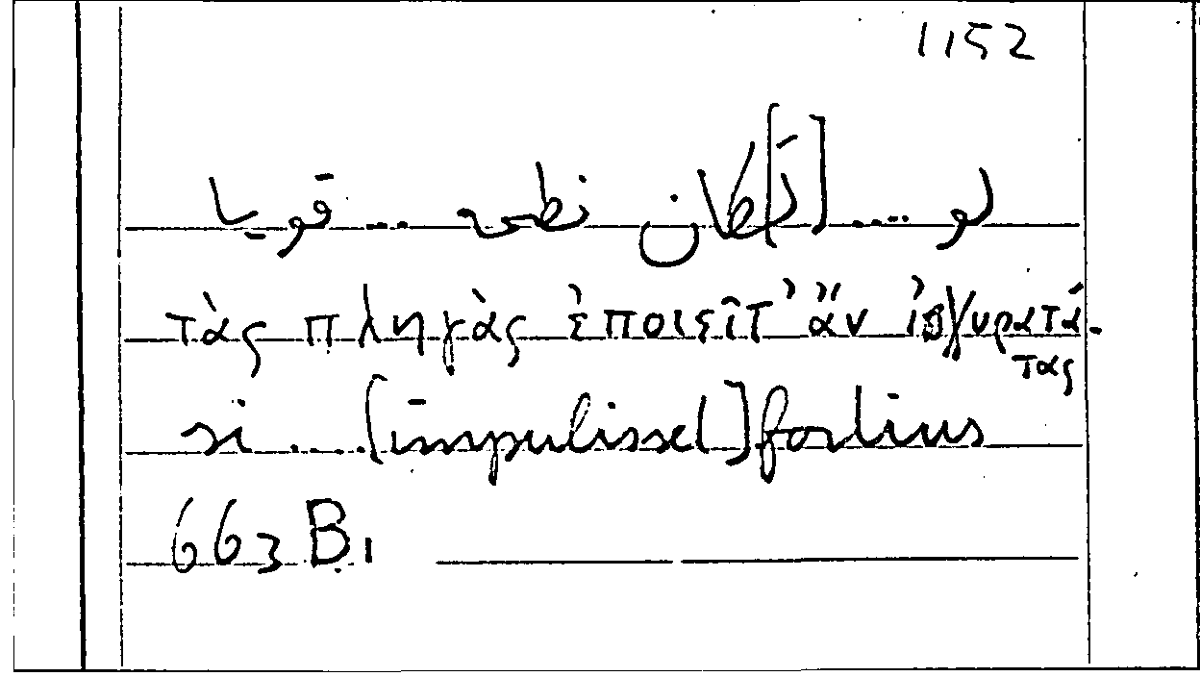 1152
لو .... [إذ]كان نطحه ... قويا
τὰς πληγὰς ἐποιεῖτ' ἂν ἰσχυρατά-
τας
si ..... [impulisset] fortius
663 B1